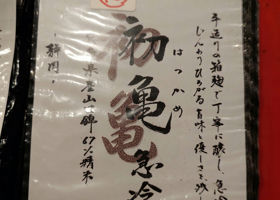 手造りの箱麹で丁寧に醸し、急冷
じんわりひろがる旨味と優しさを残し
初亀
はつかめ
急冷
県産山田錦67%精米
静岡